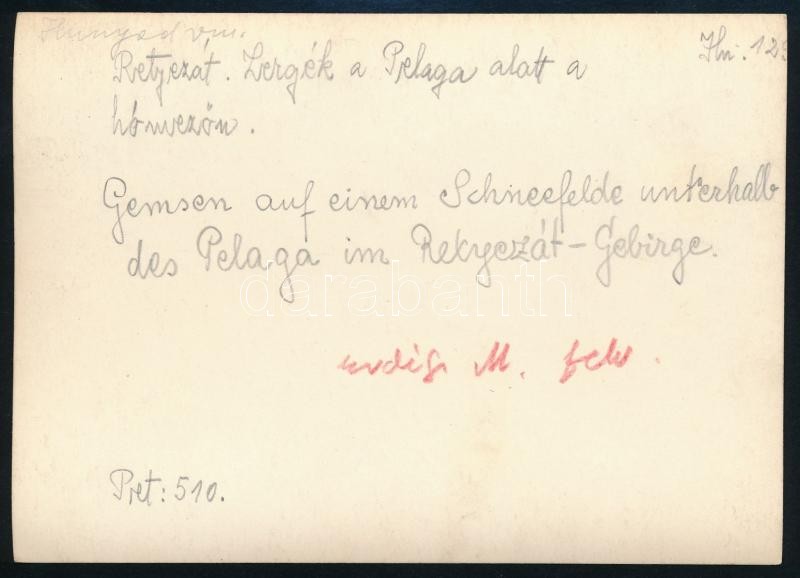 Hunyad vm.
Hu. 129
Retyezát. Zergék a Pelaga alatt a
hómezőn.
Gemsen auf einem Schneefelde unterhalb
des Pelaga im Retyezát-Gebirge.
darabanth
M. felv.
Pret: 510.